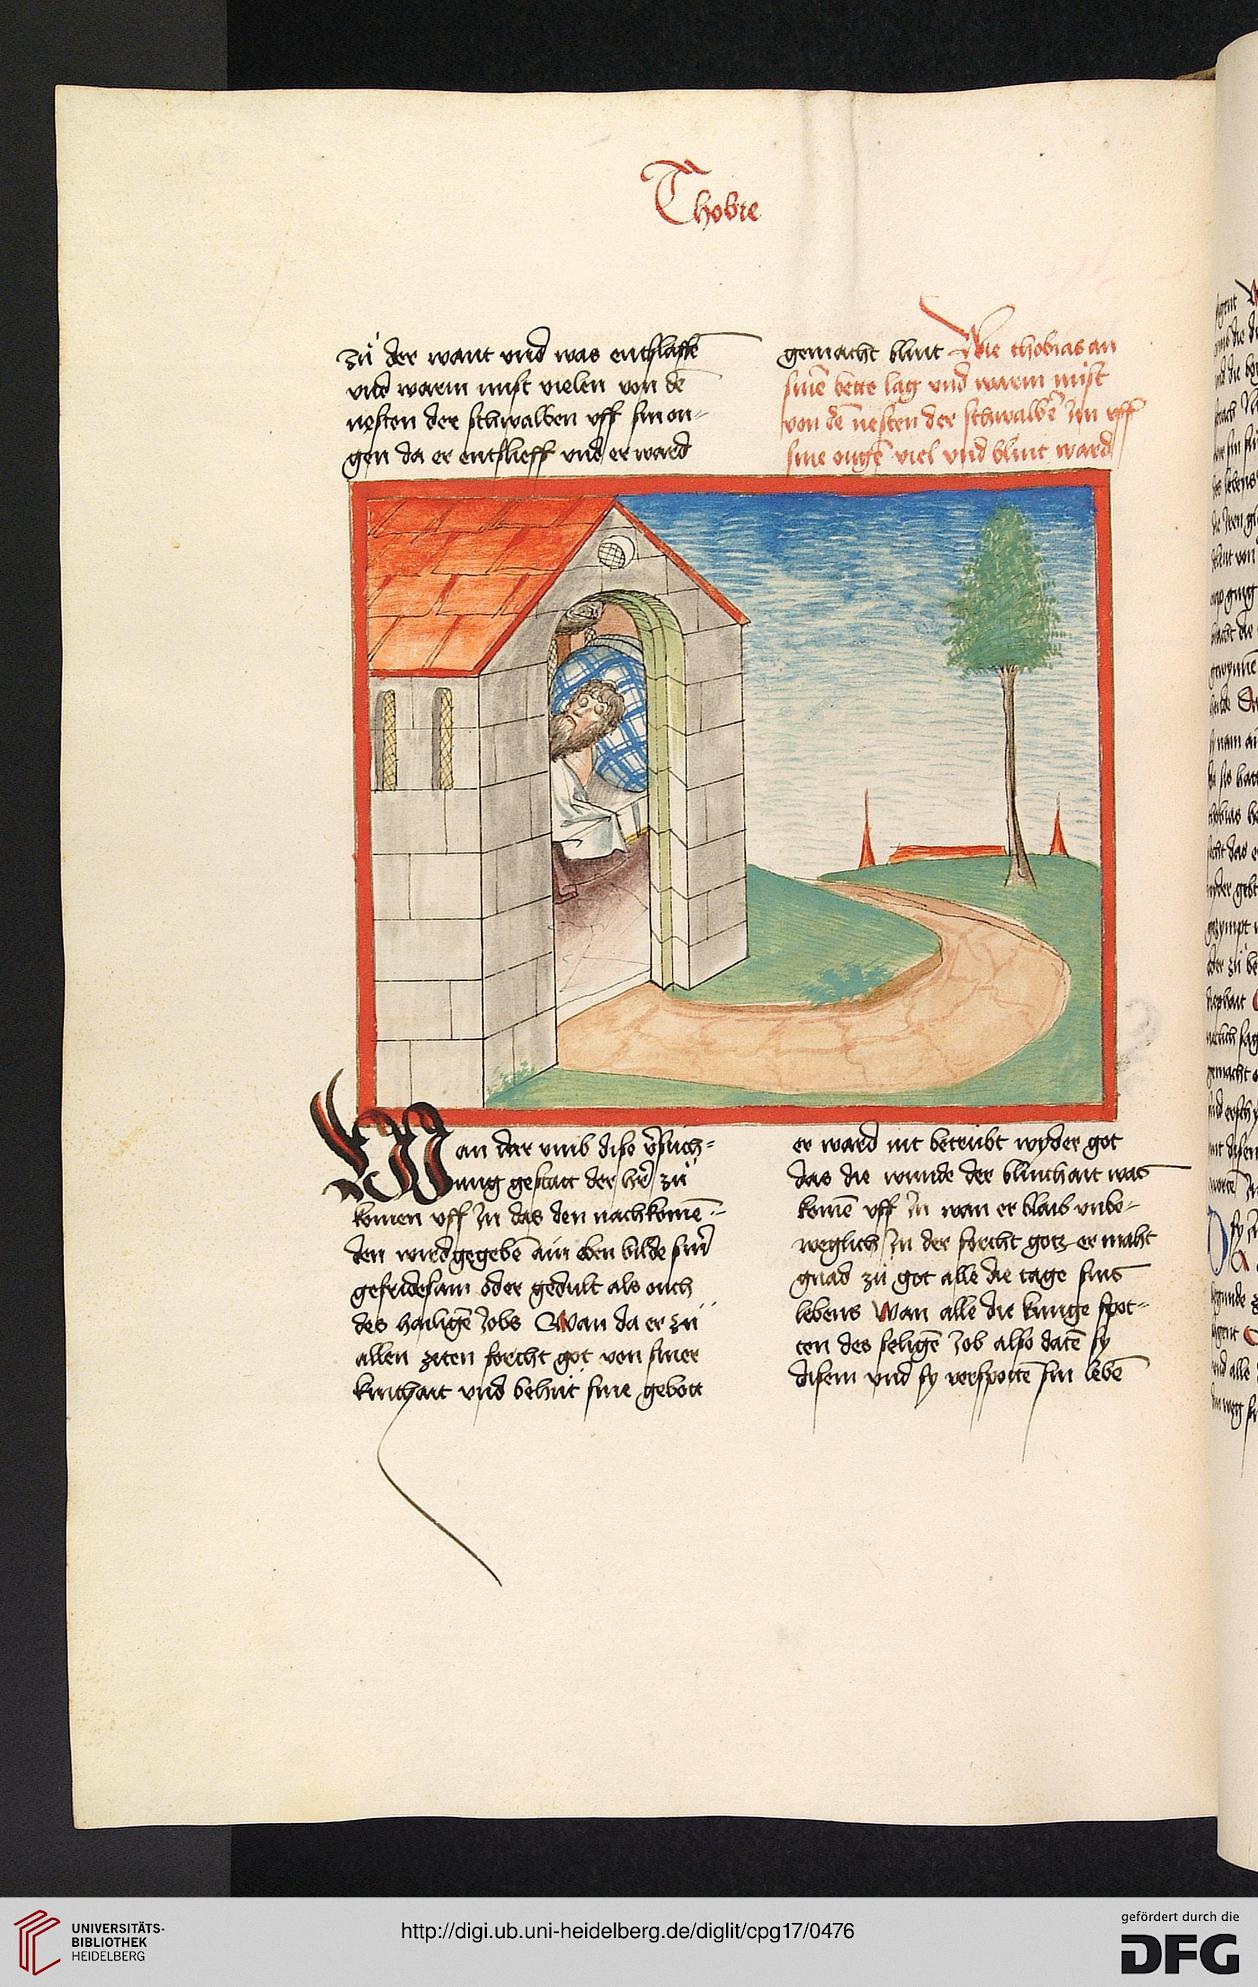 Thobie
zů der want vnd was entslaffē
vnd warm mist vielen von dē
nesten der schwalben vff sin ou-
gen da er entslieff vnd er ward
gemacht blint Wie thobias an
sinē bette lag vnd warm mist
von dē nesten der schwalbē Jn vff
sine ougē viel vnd blint ward
Wan dar vmb dise v̄such-
ung gestatt der her̄ zů
komen vff Jn das den nachkomē-
den wird gegebē ain eben bilde sin̄
gefridesam oder gedult als ouch
des hailigē Jobs Wan da er zů
allen ziten forcht got von siner
kinthait vnd behůt sine gebott
er ward nit betrübt wyder got
das die wunde der blinthait was
komē vff Jn wan er blaib vnbe-
weglich Jn der forcht gotz er maht
gnad zů got alle die tage sins
lebens Wan alle die kunge spot-
ten des seligē Job also datē sy
disem vnd sy verspottē sin lebē
UNIVERSITÄTS-
BIBLIOTHEK
HEIDELBERG
http://digi.ub.uni-heidelberg.de/diglit/cpg17/0476
gefördert durch die
DFG